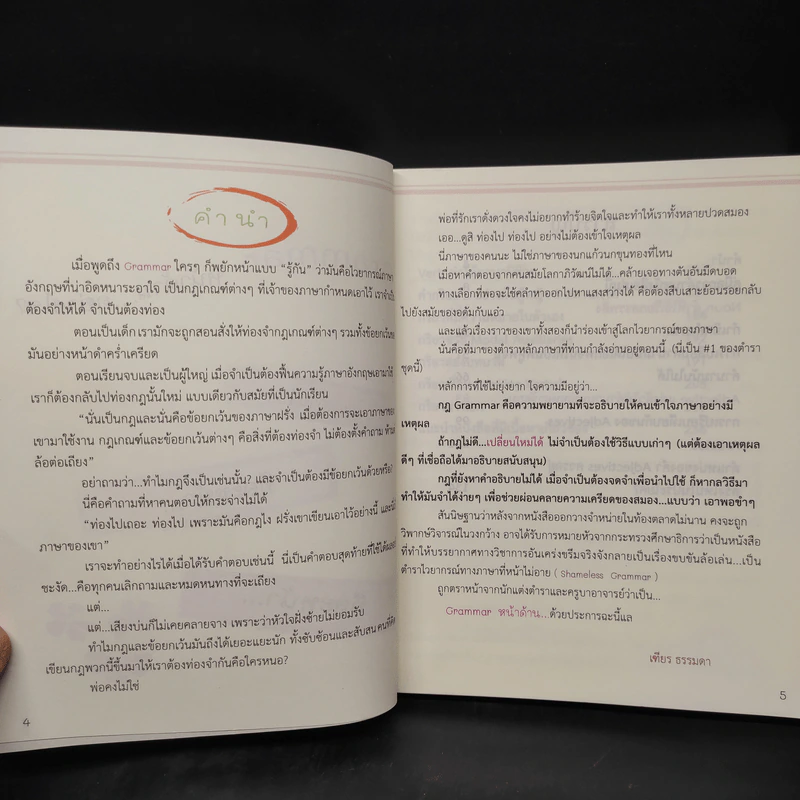 คำนำ
เมื่อพูดถึง Grammar ใครๆ ก็พยักหน้าแบบ "รู้กัน" ว่ามันคือไวยากรณ์ภาษา
อังกฤษที่น่าอิดหนาระอาใจ เป็นกฎเกณฑ์ต่างๆ ที่เจ้าของภาษากำหนดเอาไว้ เราจำเป็น
ต้องจำให้ได้ จำเป็นต้องท่อง
ตอนเป็นเด็ก เรามักจะถูกสอนสั่งให้ท่องจำกฎเกณฑ์ต่างๆ รวมทั้งข้อยกเว้นของ
มันอย่างหน้าดำคร่ำเครียด
ตอนเรียนจบและเป็นผู้ใหญ่ เมื่อจำเป็นต้องฟื้นความรู้ภาษาอังกฤษเอามาใช้
เราก็ต้องกลับไปท่องกฎนั้นใหม่ แบบเดียวกับสมัยที่เป็นนักเรียน
"นั่นเป็นกฎและนั่นคือข้อยกเว้นของภาษาฝรั่ง เมื่อต้องการจะเอาภาษาของ
เขามาใช้งาน กฎเกณฑ์และข้อยกเว้นต่างๆ คือสิ่งที่ต้องท่องจำ ไม่ต้องตั้งคำถาม ห้าม
ล้อต่อเถียง"
อย่าถามว่า...ทำไมกฎจึงเป็นเช่นนั้น? และจำเป็นต้องมีข้อยกเว้นด้วยหรือ?
นี่คือคำถามที่หาคนตอบให้กระจ่างไม่ได้
"ท่องไปเถอะ ท่องไป เพราะมันคือกฎไง ฝรั่งเขาเขียนเอาไว้อย่างนี้ และนี่
ภาษาของเขา"
เราจะทำอย่างไรได้เมื่อได้รับคำตอบเช่นนี้ นี่เป็นคำตอบสุดท้ายที่ใช้ได้ผล
ชะงัด...คือทุกคนเลิกถามและหมดหนทางที่จะเถียง
แต่...
แต่...เสียงบ่นก็ไม่เคยคลายจาง เพราะว่าหัวใจฝั่งซ้ายไม่ยอมรับ
ทำไมกฎและข้อยกเว้นมันถึงได้เยอะแยะนัก ทั้งซับซ้อนและสับสน คนที่คิด
เขียนกฎพวกนี้ขึ้นมาให้เราต้องท่องจำกันคือใครหนอ?
พ่อคงไม่ใช่
4
พ่อที่รักเราดั่งดวงใจคงไม่อยากทำร้ายจิตใจและทำให้เราทั้งหลายปวดสมอง
เออ...ดูสิ ท่องไป ท่องไป อย่างไม่ต้องเข้าใจเหตุผล
นี่ภาษาของคนนะ ไม่ใช่ภาษาของนกแก้วนกขุนทองที่ไหน
เมื่อหาคำตอบจากคนสมัยโลกาภิวัฒน์ไม่ได้...คล้ายเจอทางตันอันมืดบอด
ทางเลือกที่พอจะใช้คลำหาออกไปหาแสงสว่างได้ คือต้องสืบเสาะย้อนรอยกลับ
ไปยังสมัยของอดัมกับแอ๋ว
และแล้วเรื่องราวของเขาทั้งสองก็นำร่องเข้าสู่โลกไวยากรณ์ของภาษา
นั่นคือที่มาของตำราหลักภาษาที่ท่านกำลังอ่านอยู่ตอนนี้ (นี่เป็น #1 ของตำรา
ชุดนี้)
หลักการที่ใช้ไม่ยุ่งยาก ใจความมีอยู่ว่า...
กฎ Grammar คือความพยายามที่จะอธิบายให้คนเข้าใจภาษาอย่างมี
เหตุผล
ถ้ากฎไม่ดี...เปลี่ยนใหม่ได้ ไม่จำเป็นต้องใช้วิธีแบบเก่าๆ (แต่ต้องเอาเหตุผล
ดีๆ ที่เชื่อถือได้มาอธิบายสนับสนุน)
กฎที่ยังหาคำอธิบายไม่ได้ เมื่อจำเป็นต้องจดจำเพื่อนำไปใช้ ก็หากลวิธีมา
ทำให้มันจำได้ง่ายๆ เพื่อช่วยผ่อนคลายความเครียดของสมอง...แบบว่า เอาพอขำๆ
สันนิษฐานว่าหลังจากหนังสือออกวางจำหน่ายในท้องตลาดไม่นาน คงจะถูก
วิพากษ์วิจารณ์ในวงกว้าง อาจได้รับการหมายหัวจากกระทรวงศึกษาธิการว่าเป็นหนังสือ
ที่ทำให้บรรยากาศทางวิชาการอันเคร่งขรึมจริงจังกลายเป็นเรื่องขบขันล้อเล่น...เป็น
ตำราไวยากรณ์ทางภาษาที่หน้าไม่อาย (Shameless Grammar)
ถูกตราหน้าจากนักแต่งตำราและครูบาอาจารย์ว่าเป็น...
Grammar หน้าด้าน...ด้วยประการฉะนี้แล
เฑียร ธรรมดา
5